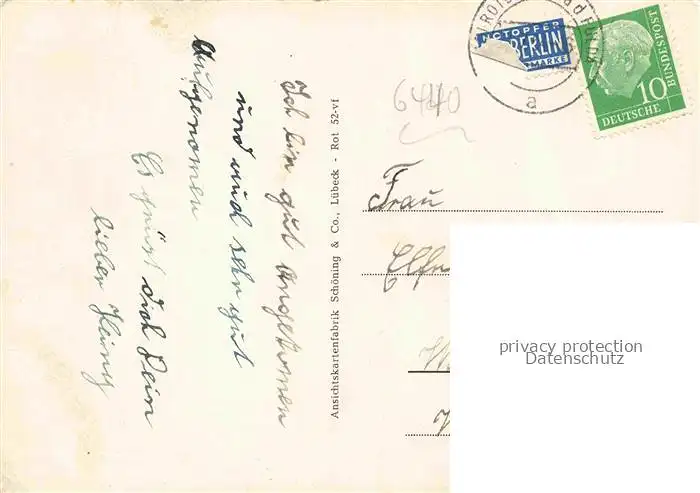 Ich bin gut Angekomen
und auch sehr gut
Aufgenomen
Es grüßt dich Dein
lieber Heinz
Ansichtskartenfabrik Schöning & Co., Lübeck - Rot 52-vf
6440
NOTOPFER
BERLIN
MARKE
a
10
DEUTSCHE
BUNDESPOST
Frau
privacy protection
Datenschutz